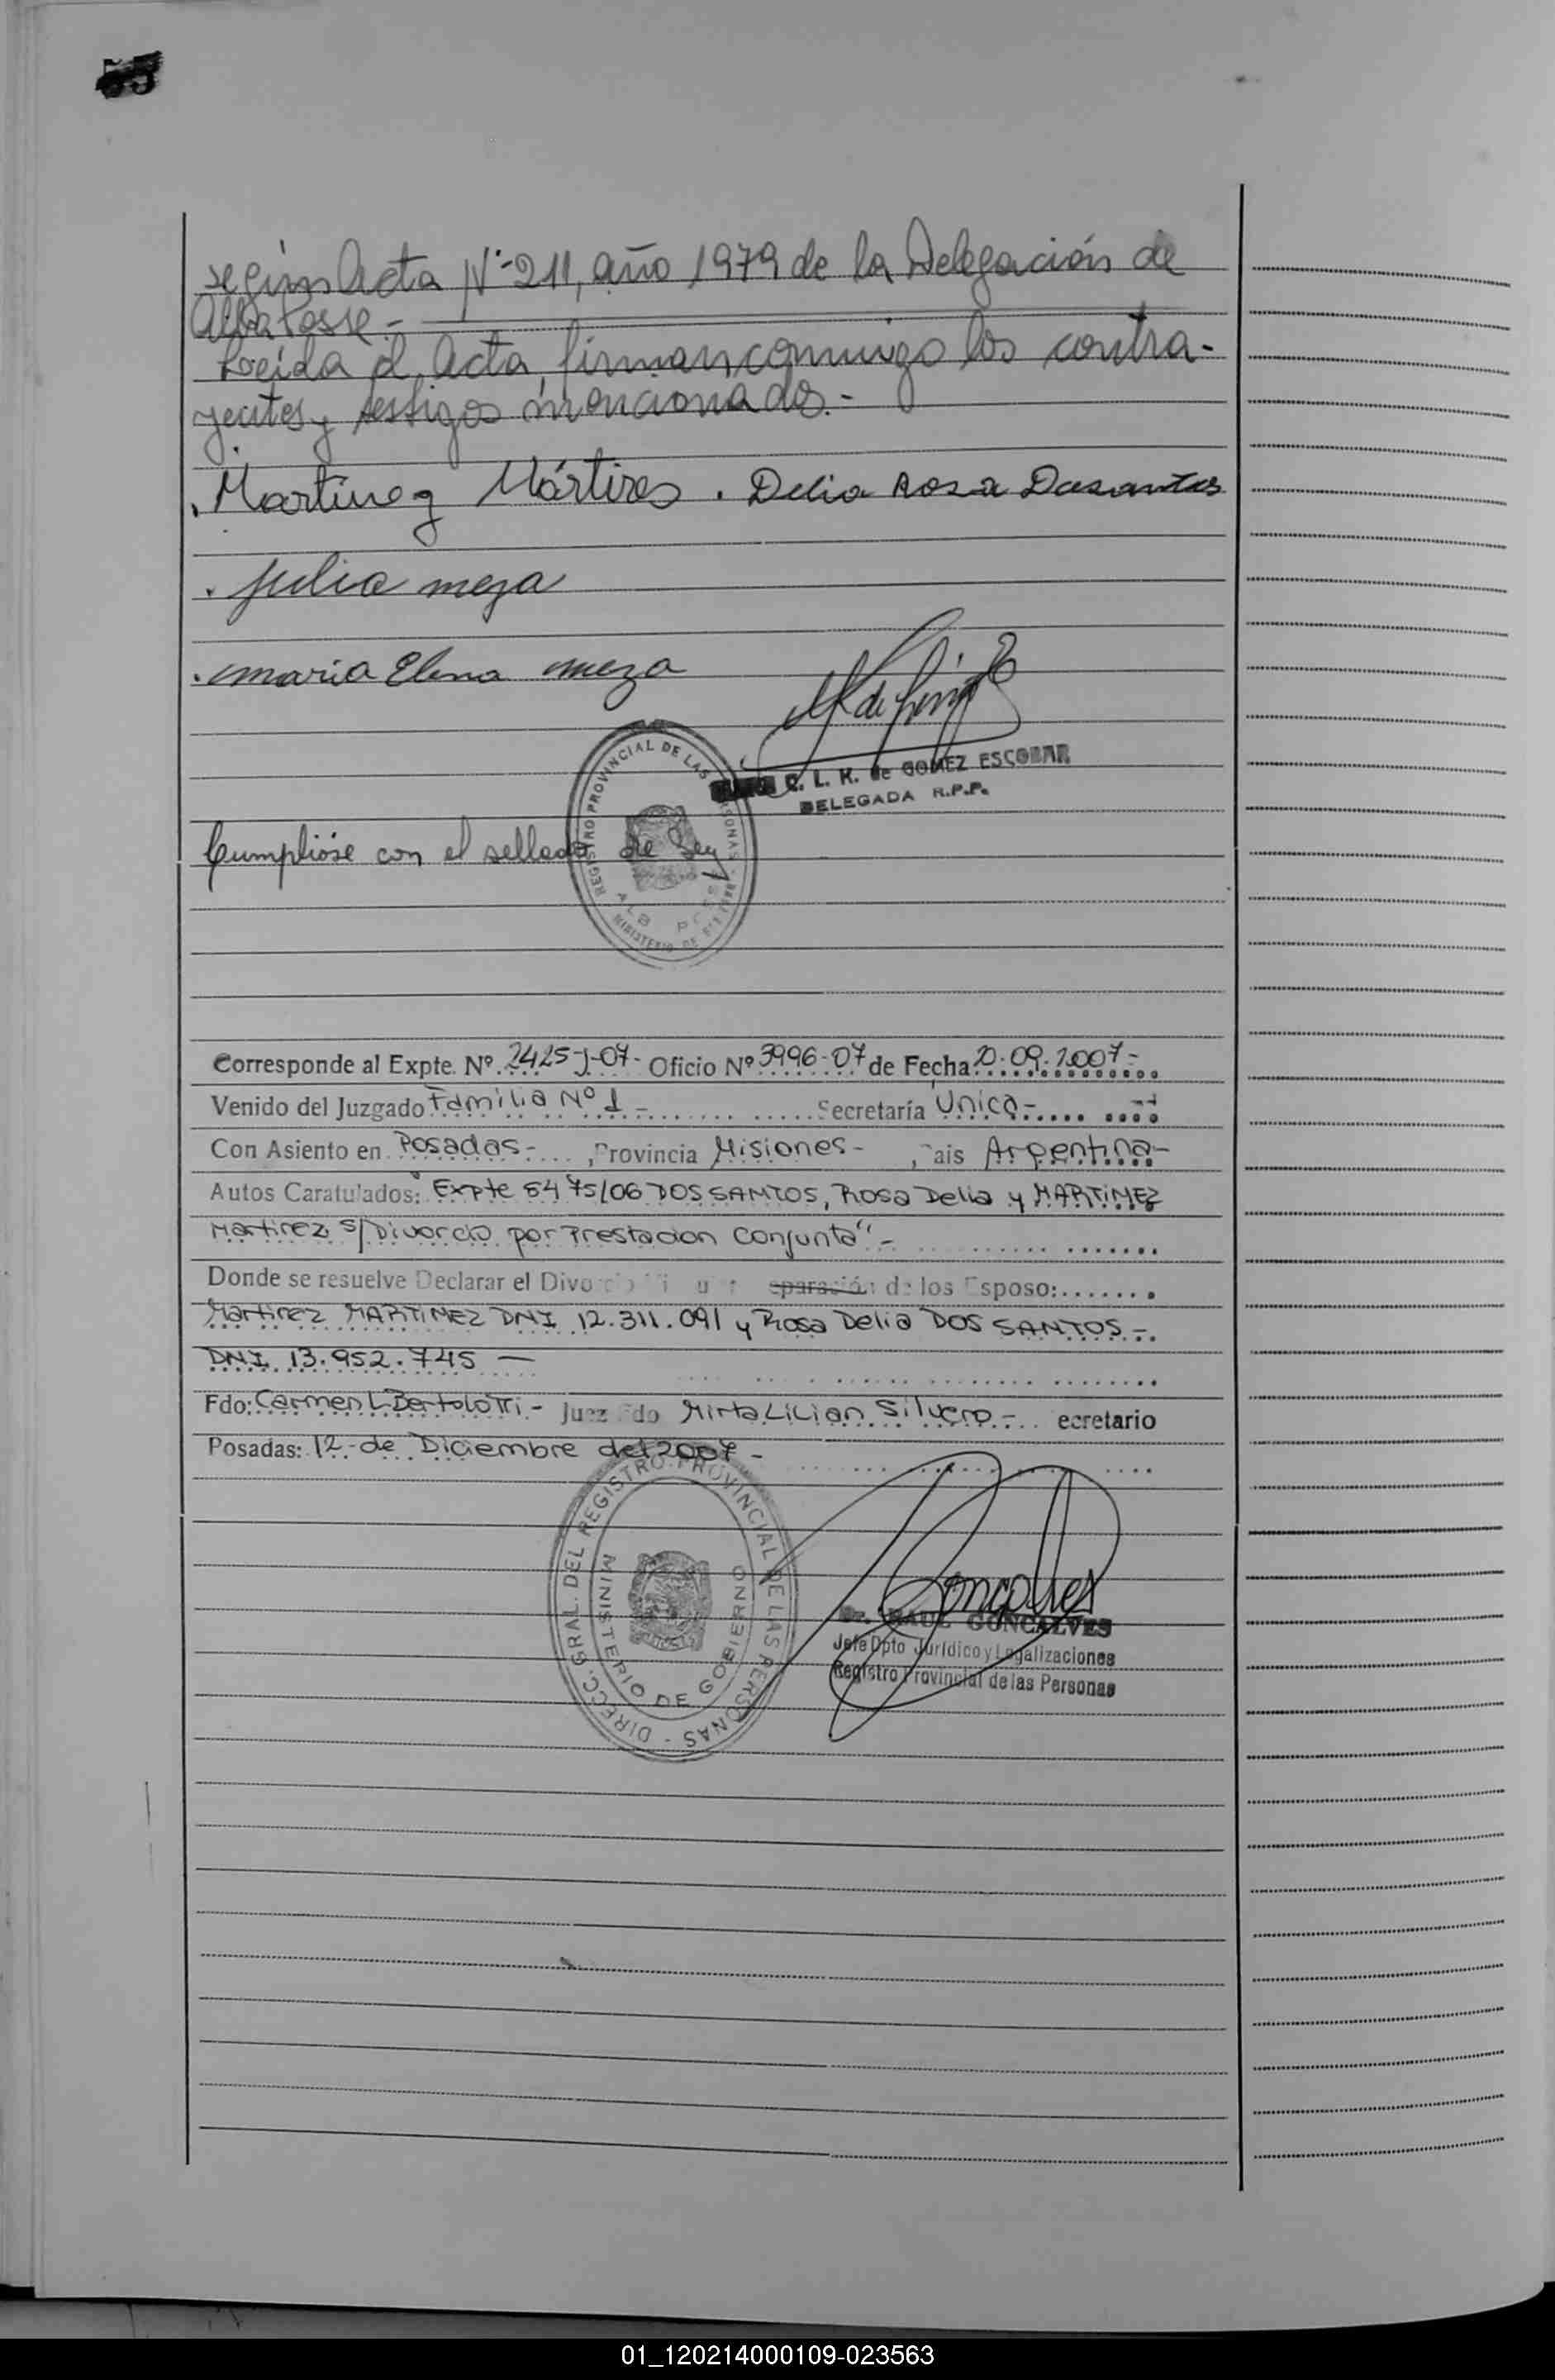 según Acta Nº 211, año 1979 de la Delegación de
Alba Posse.-
Leída el Acta, firman conmigo los contra-
yentes y testigos mencionados.-
Martinez Mártires . Delia Rosa Dasantos
Julia meza
maria Elena meza
C. L. K. de GOMEZ ESCOBAR
DELEGADA R.P.P.
REGISTRO PROVINCIAL DE LAS PERSONAS
MINISTERIO DE
Cumplióse con el sellado de Ley
Corresponde al Expte. Nº. 2425-J-07- Oficio Nº 3996-07 de Fecha 20.09.2007-
Venido del Juzgado Familia Nº 1- Secretaría Unica-
Con Asiento en Posadas- Provincia Misiones- País Argentina-
Autos Caratulados: "Expte 5475/06 DOS SANTOS, Rosa Delia y MARTINEZ
Martirez s/Divorcio por Prestacion Conjunta"-
Donde se resuelve Declarar el Divorcio eparación de los Esposo:
Martirez MARTINEZ DNI 12.311.091 y Rosa Delia DOS SANTOS-
DNI 13.952.745 —
Fdo: Carmen L Bertolotti- Juez Fdo Mirta Lilian Silvero- ecretario
Posadas: 12-de Diciembre del 2007-
DIRECC. GRAL. DEL REGISTRO PROVINCIAL DE LAS PERSONAS -
MINISTERIO DE GOBIERNO
Goncalves
Dr. RAUL GONCALVES
Jefe Dpto Jurídico y Legalizaciones
Registro Provincial de las Personas
01_120214000109-023563